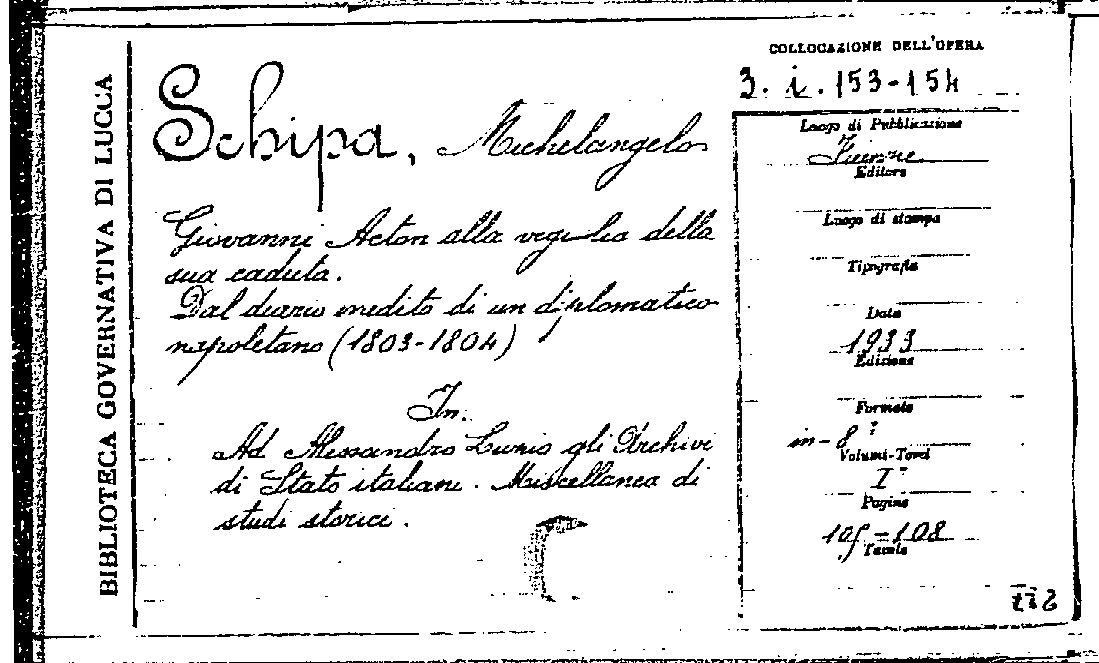 BIBLIOTECA GOVERNATIVA DI LUCCA
COLLOCAZIONE DELL'OPERA
3. i. 153-154
Schipa, Michelangelo
Giovanni Acton alla vegilia della
sua caduta.
Dal diario inedito di un diplomatico
napoletano (1803-1804)
In.
Ad Alessandro Luzio gli Archivi
di Stato italiani. Miscellanea di
studi storici.
Luogo di Pubblicazione
Firenze
Editore
Luogo di stampa
Tipografia
Data
1933
Edizione
Formato
in-8°
Volumi-Tomi
I°
Pagine
105-108
Tavole